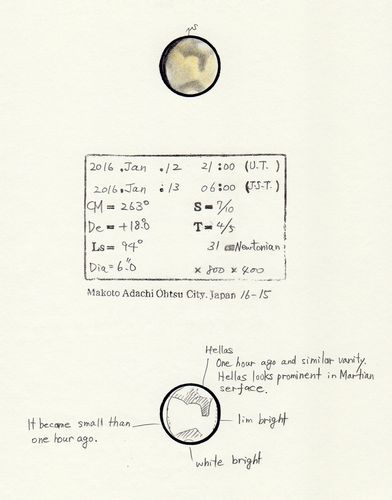 NS
2016 . Jan . 12 21:00 (U.T.)
2016 . Jan . 13 06:00 (J.S.T.)
CM = 263° S = 7/10
De = +18.0 T = 4/5
Ls = 94° 31 cm Newtonian
Dia = 6."0 × 800 × 400
Makoto Adachi Ohtsu City. Japan 16-15
Hellas
One hour ago and similar vanity.
Hellas looks prominent in Martian
serface.
It become small than
one hour ago.
lim bright
white bright